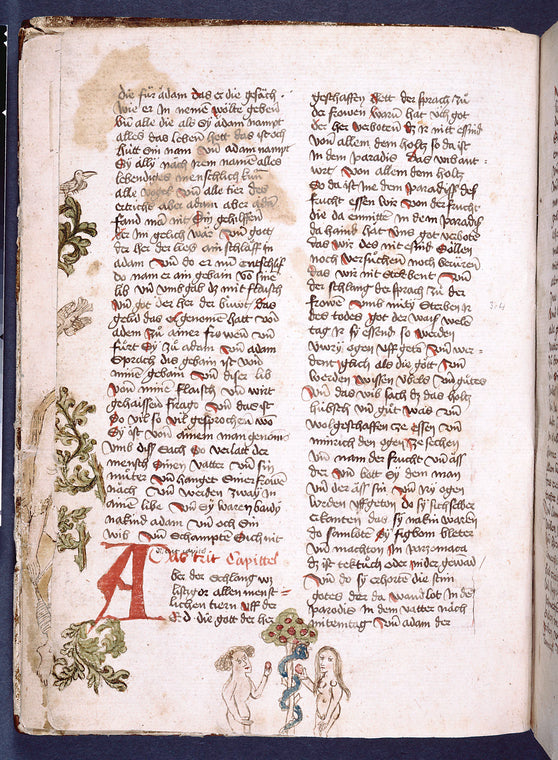 die für adam das er die gesäch
wie er in nemē wölte geben
vn̄ alle die als ey adam nampt
alles das leben hett das ist och
hütt sin nam vn̄ adam nampt
Ey ally näch irem namē alles
lebendiges menschlich kun
alle vogel vn̄ alle tier des
ertrichs aber adam aber adā
fand mā nit Ein gehilffen
der im gelich wär vn̄ gott
der her der lies ain schlauff in
adam vn̄ do er nū entschlieff
do nam er ain gebain vo sinē
lib vn̄ vmb gab dz mit flaisch
vn̄ got der her der buwt das
gelid das er genomen hatt von
adem zü ainer frowen vn̄
fürt Ey zü adam vn̄ adam
Sprach dis gebain ist von
mīne gebain vn̄ diser lib
von mīne flaisch vn̄ wirt
gehaissen frage vn̄ das ist
So vil so vil gesprochen wo
Ey ist von ainem man genom
vmb diss Sach So verlatt der
mensch Einen vatter vn̄ sin
müter vn̄ hanget siner frowē
nach vn̄ werden zway in
ainē libe vn̄ Ey waren baidȳ
nakind adam vn̄ och Ein
wib vn̄ Schampte Sich nit
Das trit Capittel
Aber der Schlang wz
listigor allen menst-
lichen tiern vff der
Erd die gott der her
geschaffen hett der sprach zü
der frowen warū hat üch got
der her verboten dz ir nit essind
von allem dem holtz so da ist
in dem paradis das wib ant-
wirt von allem dem holtz
So da ist Jne dem paradiss des
frucht essen wir von der frucht
die da enmitte in dem paradis
da haind hatt vns got verbotē
das wir des nit essind Söllen
noch versüchen noch berürēn
das wir nit sterbent vn̄
der schlang der sprach zü der
frowē vmb nüty sterben ir
des todes got der waiss weles
tag ir sy essend so werden
vwry ogen vff getō vn̄ wer-
dent glich als die göt vn̄
werden wissen vbels vn̄ gütes
vn̄ das wib sach dz das holtz
hübsch vn̄ güt was vn̄
wolgeschaffen zze essen vn̄
minrich den ogen ze sechen
vn̄ nam der frucht vn̄ äss
der vn̄ bott Ey dem man
vn̄ der äss sin vn̄ iry ogen
werden vffgeton do sy sich selber
erkanten das sy nakin waren
do samlote Ey figbom bleter
vn̄ machton in parzomaca
dz ist tektüch oder nider gewad
vn̄ do sy erhorte die stim
gotes der da wandlot in de
parodis in dem vatter nach
mitemtag vn̄ adam der